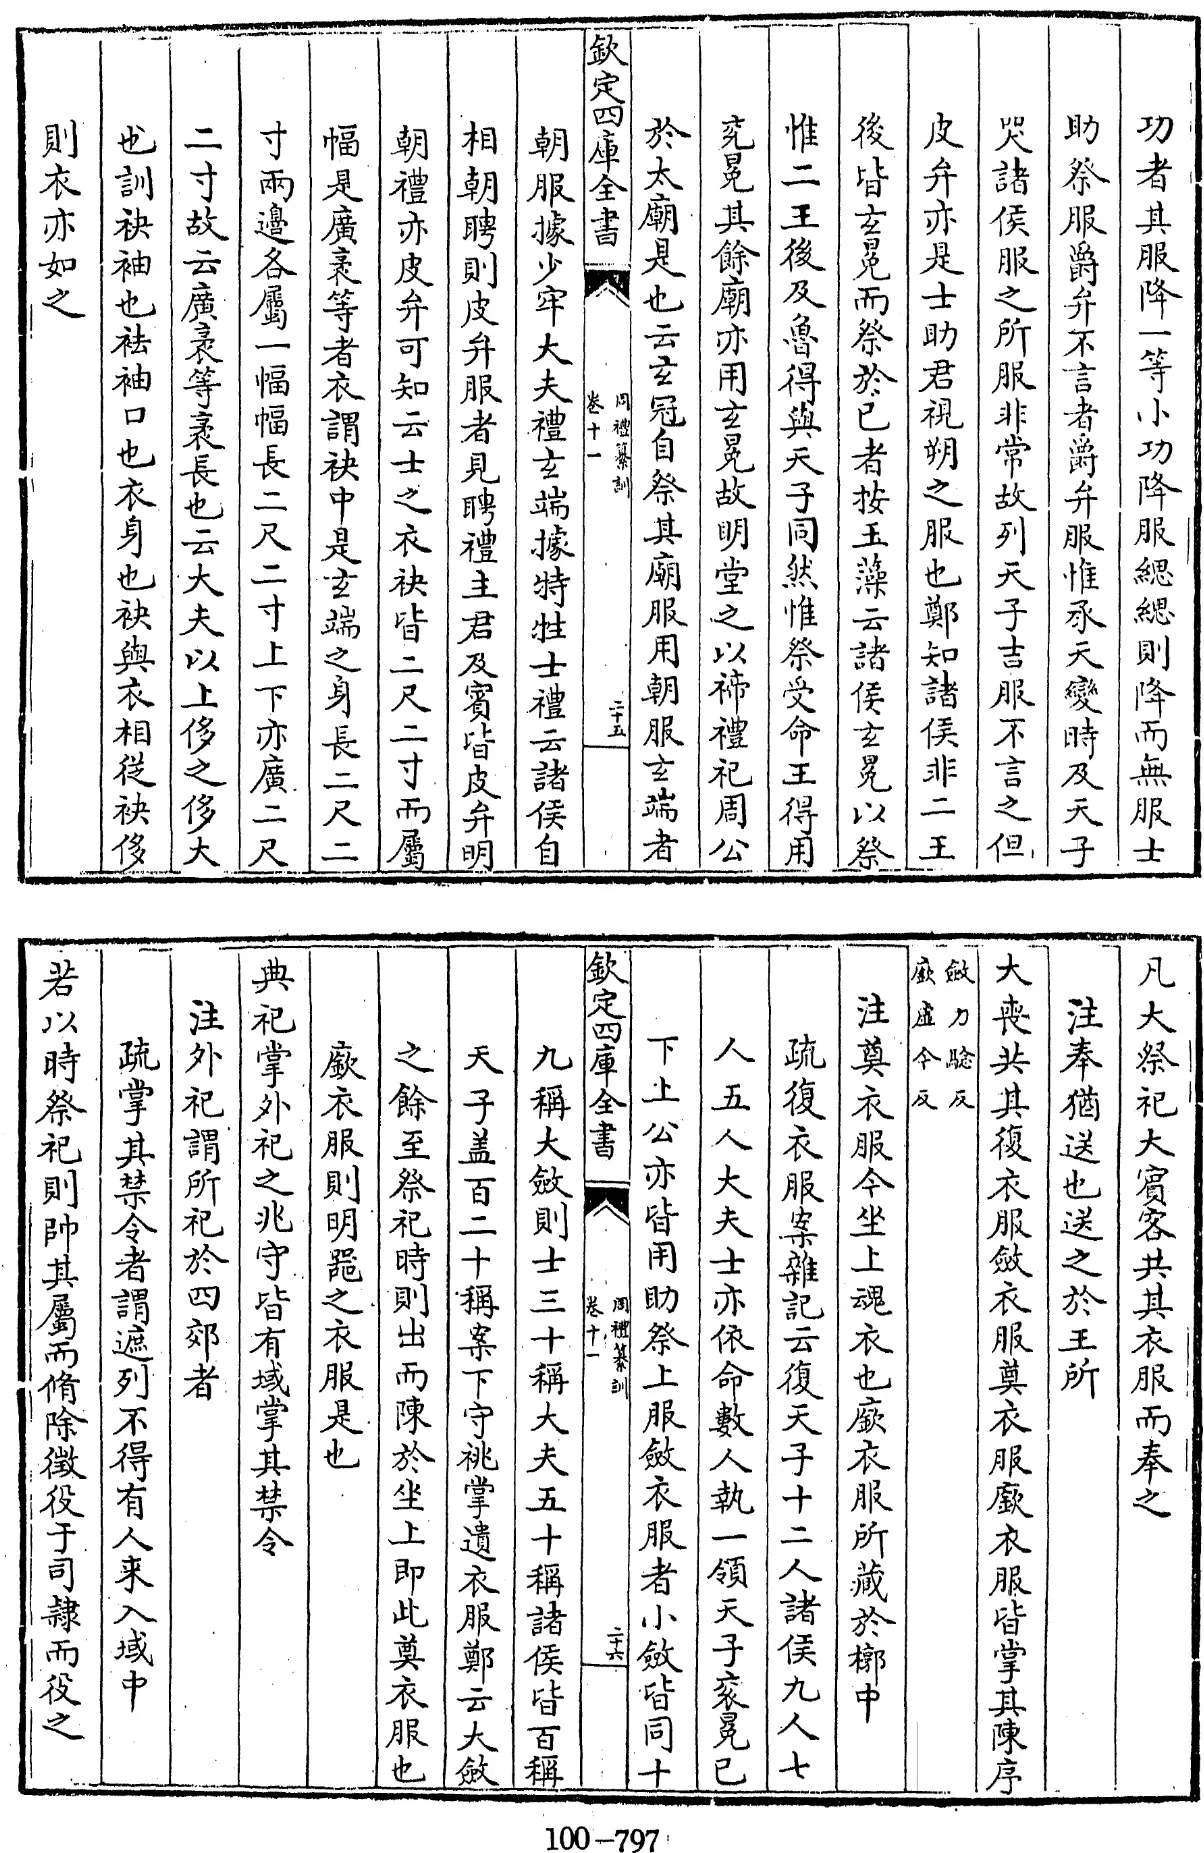 功者其服降一等小功降服緦緦則降而無服士
助祭服爵弁不言者爵弁服惟承天變時及天子
哭諸侯服之所服非常故列天子吉服不言之但
皮弁亦是士助君視朔之服也鄭知諸侯非二王
後皆玄冕而祭於已者按玉藻云諸侯玄冕以祭
惟二王後及魯得與天子同然惟祭受命王得用
兖冕其餘廟亦用玄冕故明堂之以禘禮祀周公
於太廟是也云玄冠自祭其廟服用朝服玄端者
欽定四庫全書
周禮纂訓
卷十一
二十五
朝服據少牢大夫禮玄端據特牲士禮云諸侯自
相朝聘則皮弁服者見聘禮主君及賓皆皮弁明
朝禮亦皮弁可知云士之衣袂皆二尺二寸而屬
幅是廣袤等者衣謂袂中是玄端之身長二尺二
寸兩邊各屬一幅幅長二尺二寸上下亦廣二尺
二寸故云廣袤等袤長也云大夫以上侈之侈大
也訓袂袖也袪袖口也衣身也袂與衣相從袂侈
則衣亦如之
凡大祭祀大賓客共其衣服而奉之
注奉猶送也送之於王所
大喪共其復衣服斂衣服奠衣服廞衣服皆掌其陳序
斂力驗反
廞虛今反
注奠衣服今坐上魂衣也廞衣服所藏於椁中
疏復衣服案雜記云復天子十二人諸侯九人七
人五人大夫士亦依命數人執一領天子衮冕已
下上公亦皆用助祭上服斂衣服者小斂皆同十
欽定四庫全書
周禮纂訓
卷十一
二十六
九稱大斂則士三十稱大夫五十稱諸侯皆百稱
天子盖百二十稱案下守祧掌遺衣服鄭云大斂
之餘至祭祀時則出而陳於坐上即此奠衣服也
廞衣服則明器之衣服是也
典祀掌外祀之兆守皆有域掌其禁令
注外祀謂所祀於四郊者
疏掌其禁令者謂遮列不得有人来入域中
若以時祭祀則帥其屬而脩除徵役于司隸而役之
100-797